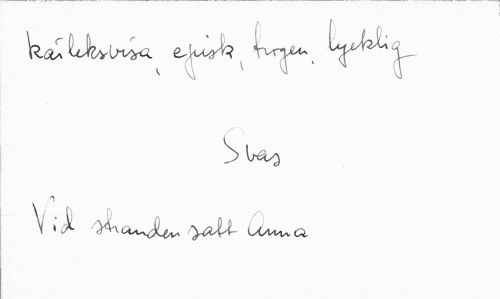 kärleksvisa, episk, trogen, lycklig
Svas
Vid stranden satt Anna